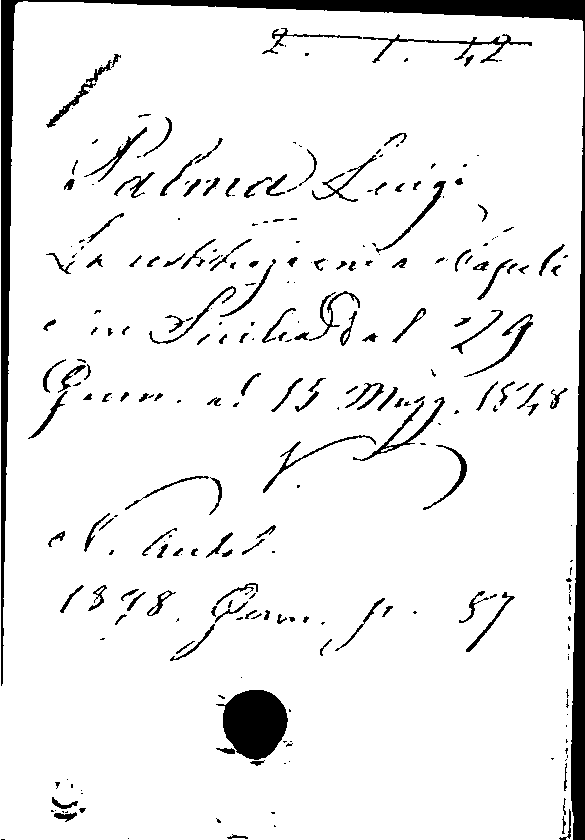 2. 1. 42
Palma Luigi
La costituzione a Napoli
e in Sicilia dal 29
Genn. al 15 Magg. 1848
V.
N. Antol.
1878. Genn. p. 57